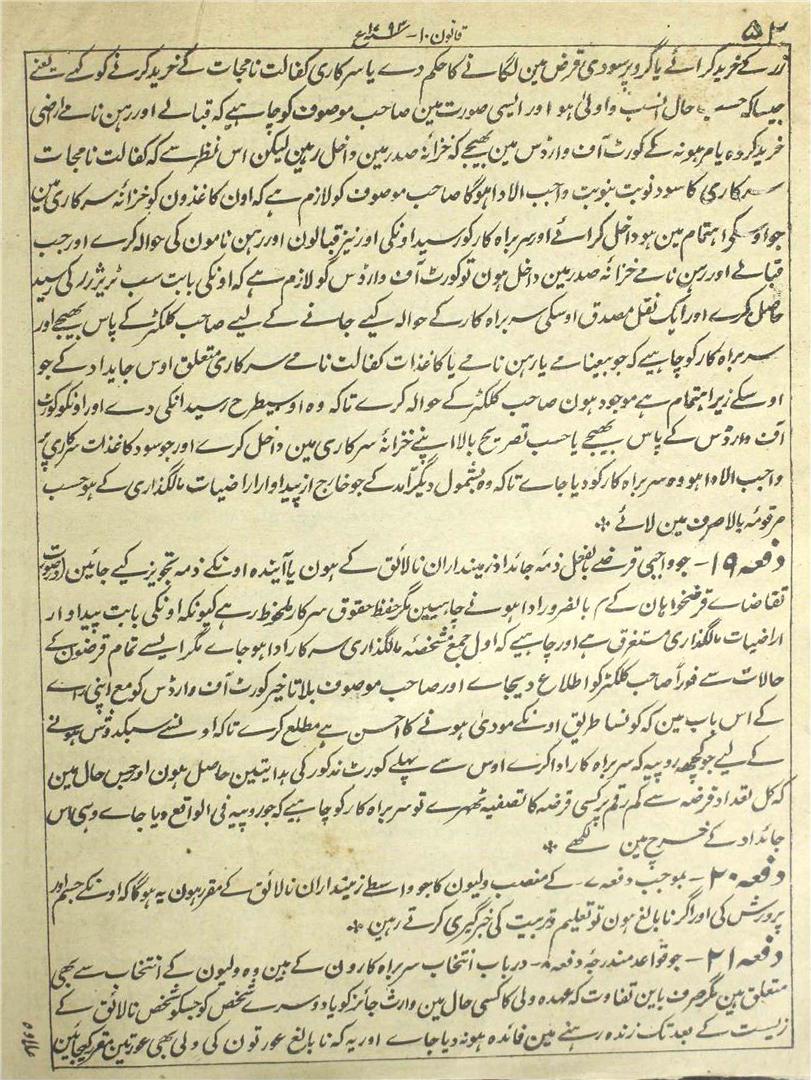 ۵۲ قانون ۱۰ - ۱۷۹۳ع
زر کے خرید کرائے یا گرو پر سودی قرض مین لگانے کا حکم دے یا سرکاری کفالت نامجات کے خرید کرنے کو کہے یعنے
جیسا کہ حسب حال انسب واولیٰ ہو اور ایسی صورت مین صاحب موصوف کو چاہیے کہ قبالے اور رہن نامے اراضی
خرید کردہ یا مرہونہ کے کورٹ آف وارڈس مین بھیجے کہ خزانۂ صدر مین داخل رہین لیکن اس نظر سے کہ کفالت نامجات
سرکاری کا سود نوبت بنوبت واجب الادا ہوگا صاحب موصوف کو لازم ہے کہ اون کاغذون کو خزانۂ سرکاری مین
جو اوسکے اہتمام مین ہو داخل کرائے اور سربراہ کار کو رسید اونکی اور نیز قبالون اور رہن نامون کی حوالہ کرے اور جب
قبالے اور رہن نامے خزانۂ صدر مین داخل ہون تو کورٹ آف وارڈس کو لازم ہے کہ اونکی بابت سب ٹریژرر کی رسید
حاصل کرے اور ایک نقل مصدق اوسکی سربراہ کار کے حوالہ کیے جانے کے لیے صاحب کلکٹر کے پاس بھیجے اور
سربراہ کار کو چاہیے کہ جو بیعنامے یا رہن نامے یا کاغذات کفالت نامے سرکاری متعلق اوس جایداد کے جو
اوسکے زیر اہتمام ہے موجود ہون صاحب کلکٹر کے حوالہ کرے تاکہ وہ اوسیطرح رسید انکی دے اور اونکو کورٹ
آف وارڈس کے پاس بھیجے یا حسب تصریح بالا اپنے خزانۂ سرکاری مین داخل کرے اور جو سود کاغذات سرکاری پر
واجب الادا ہو وہ سربراہ کار کو دیا جاے تاکہ وہ بشمول دیگر آمد کے جو خارج از پیداوار اراضیات مالگذاری کے ہو حسب
مرقومۂ بالا صرف مین لائے *
دفعہ ۱۹ - جو واجبی قرضے بالفعل ذمۂ جائداد زمینداران نالائق کے ہون یا آیندہ اونکے ذمہ تجویز کیے جائین درصورت
تقاضاے قرضخواہان کے بالضرور ادا ہونے چاہییں مگر حفظ حقوق سرکار ملحوظ رہے کیونکہ اونکی بابت پیداوار
اراضیات مالگذاری مستغرق ہے اور چاہیے کہ اول جمع مشخصۂ مالگذاری سرکار ادا ہو جاے مگر ایسے تمام قرضون کے
حالات سے فوراً صاحب کلکٹر کو اطلاع دیجاے اور صاحب موصوف بلا تاخیر کورٹ آف وارڈس کو مع اپنی راے
کے اس باب مین کہ کونسا طریق اونکے مودیٰ ہونے کا احسن ہے مطلع کرے تاکہ اونسے سبکدوش ہونے
کے لیے جو کچھ روپیہ کہ سربراہ کار ادا کرے اوس سے پہلے کورٹ مذکور کی ہدایتین حاصل ہون اور جس حال مین
کہ کل تعداد قرضہ سے کم رقم پر کسی قرضہ کا تصفیہ ٹھہرے تو سربراہ کار کو چاہیے کہ جو روپیہ فی الواقع دیا جاے وہی اس
جائداد کے خرچ مین لکھے *
دفعہ ۲۰ - بموجب دفعہ ۷ کے منصب ولیون کا جو واسطے زمینداران نالائق کے مقرر ہون یہ ہوگا کہ اونکے جسم اور
پرورش کی اور اگر نابالغ ہون تو تعلیم و تربیت کی خبر گیری کرتے رہین *
دفعہ ۲۱ - جو قواعد مندرجۂ دفعہ ۸ درباب انتخاب سربراہ کارون کے ہین وہ ولیون کے انتخاب سے بھی
متعلق ہین مگر صرف باین تفاوت کہ عہدہ ولی کا کسی حال مین وارث جائز کو یا دوسرے شخص کو جسکو شخص نالائق کے
زیست کے بعد تک زندہ رہنے مین فائدہ ہو نہ دیا جاے اور یہ کہ نابالغ عورتون کی ولی بھی عورتین مقرر کیجائین